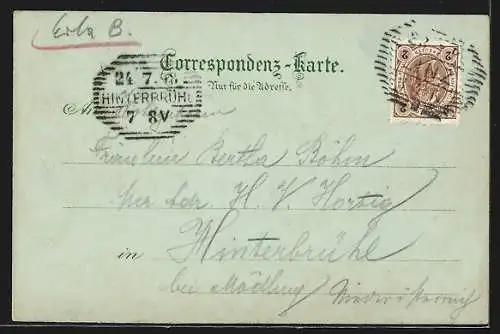 Erla B.
Correspondenz-Karte.
Nur für die Adresse.
24 7
HINTERBRÜHL
7 8V
2 2
An
Fräulein Bertha Böhm
per adr. H. V. Hortig
in Hinterbrühl
bei Mödling Niederösterreich